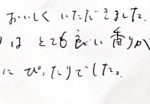 おいしくいただきました。
はとても良い香りが
にぴったりでした。